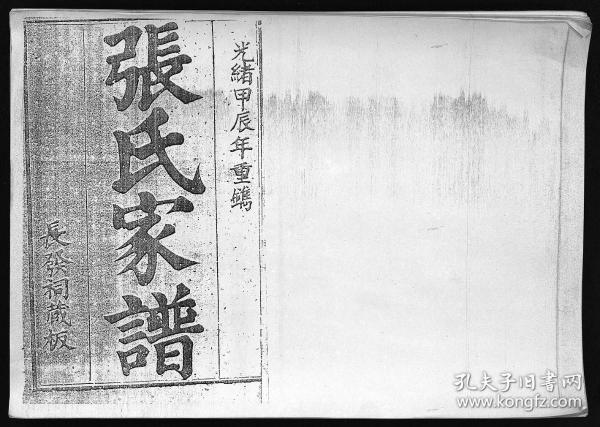 光緒甲辰年重鐫
張氏家譜
長發祠蔵板
孔夫子旧書网
www.kongfz.com